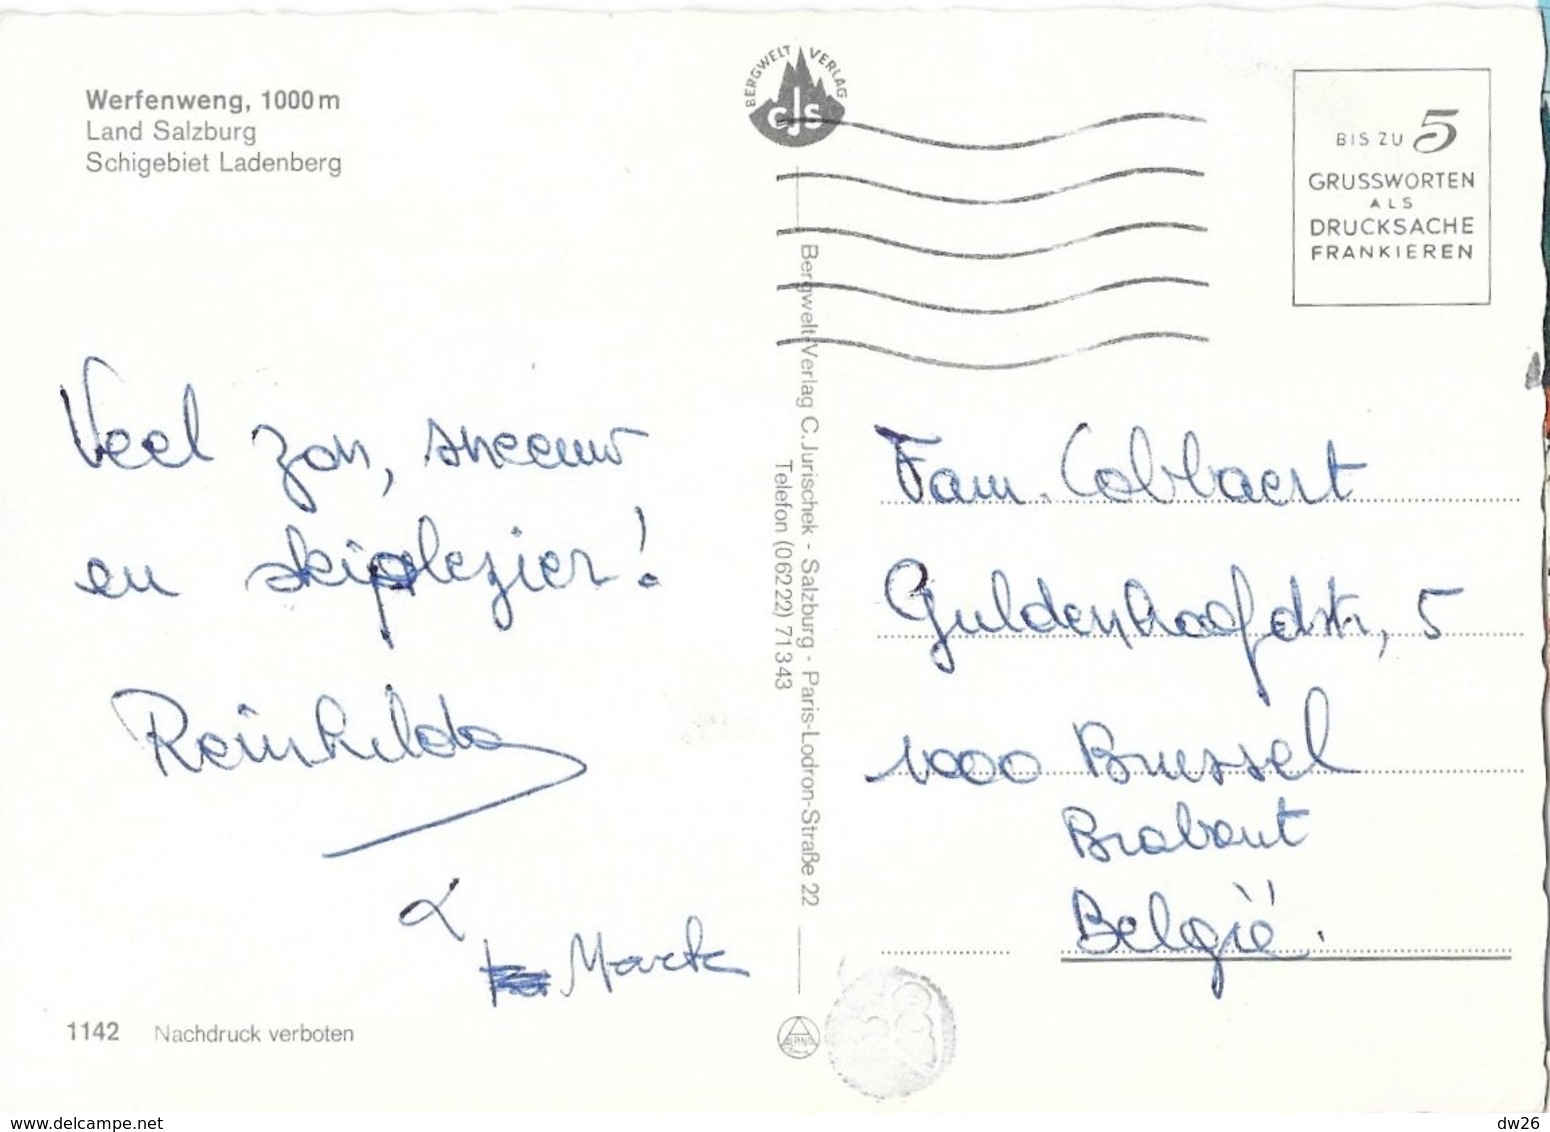 Werfenweng, 1000 m
Land Salzburg
Schigebiet Ladenberg
BERGWELT VERLAG
CJS
BIS ZU 5
GRUSSWORTEN
ALS
DRUCKSACHE
FRANKIEREN
Veel zon, sneeuw
en skiplezier!
Reinhilda
&
Marck
Bergwelt-Verlag C. Jurischek - Salzburg - Paris-Lodron-Straße 22
Telefon (06222) 71343
Fam. Cobbaert
Guldenhoofdstr, 5
1000 Brussel
Brabant
België.
1142 Nachdruck verboten
www.delcampe.net
dw26